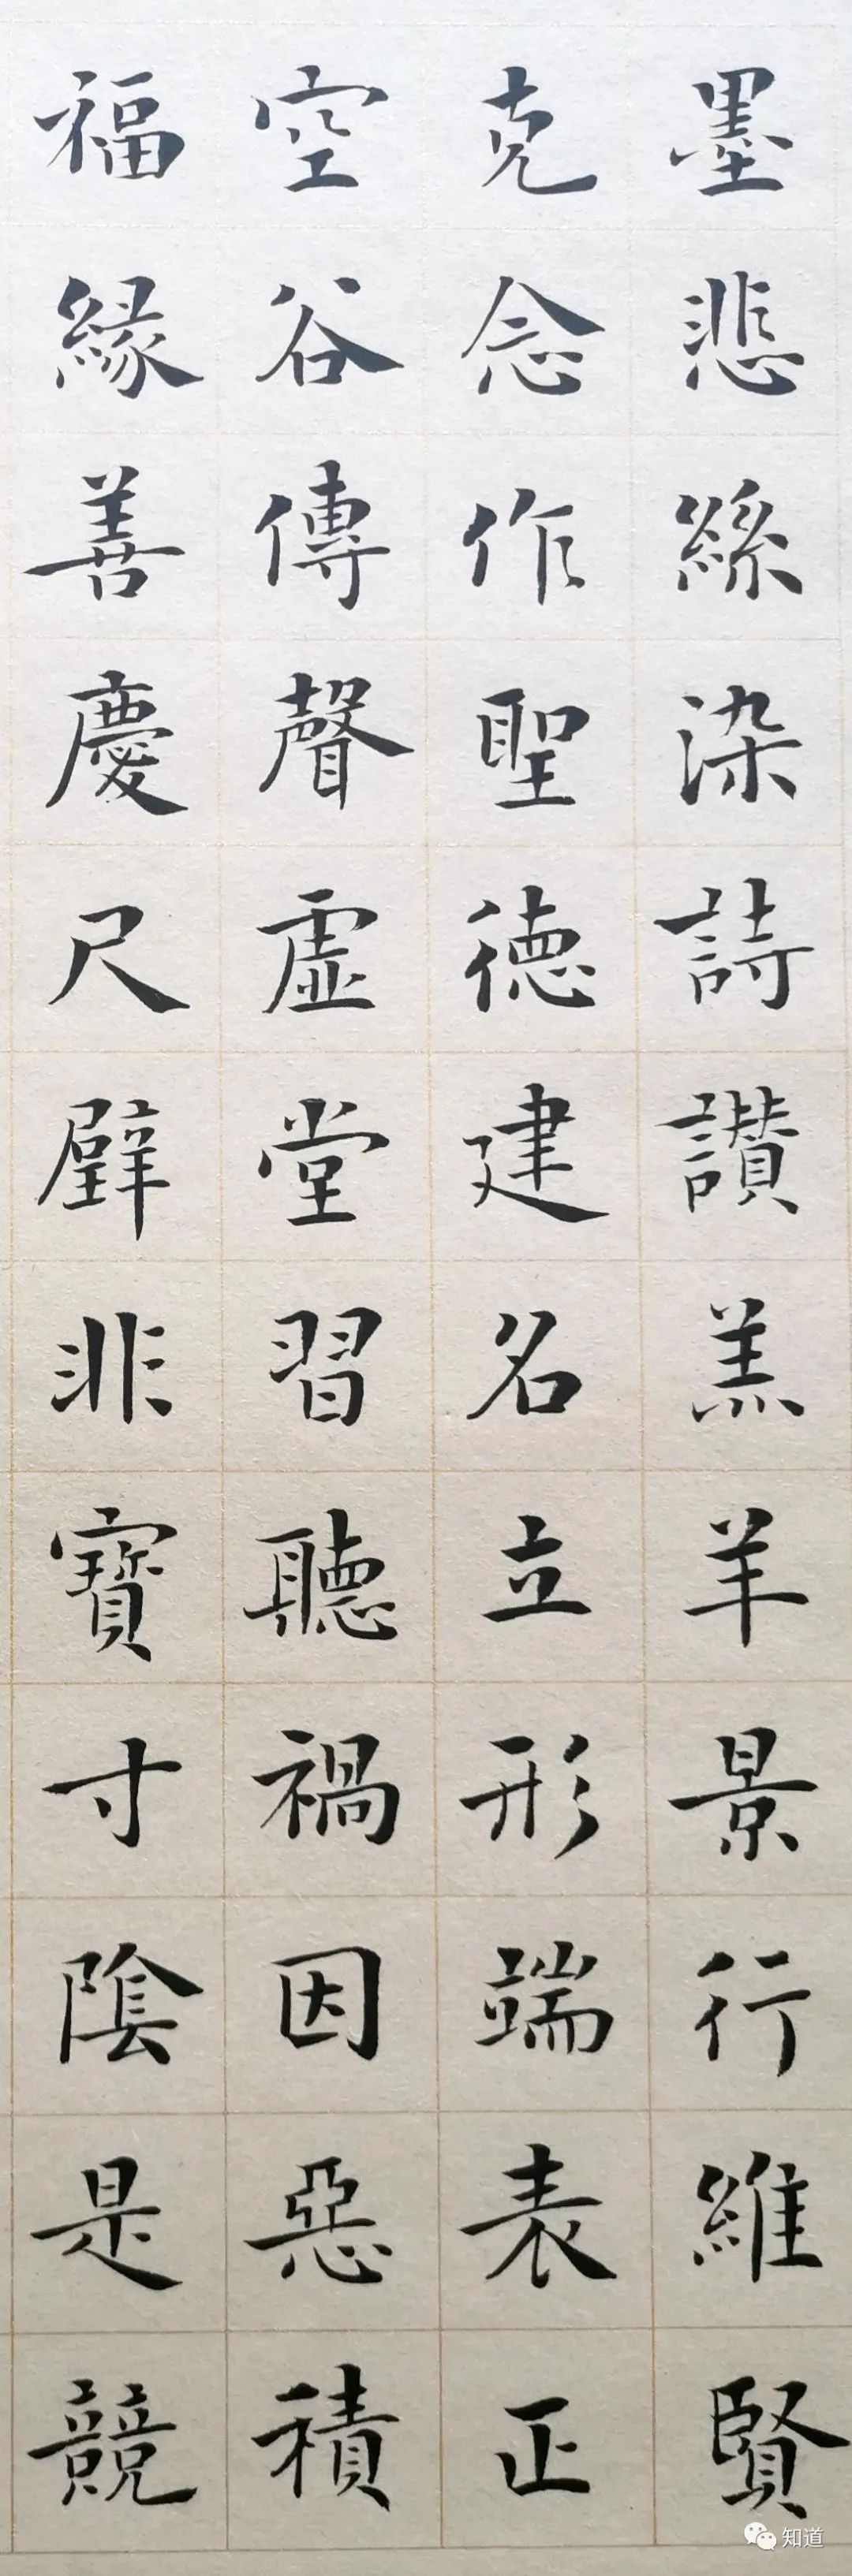 墨悲絲染詩讚羔羊景行維賢
克念作聖德建名立形端表正
空谷傳聲虛堂習聽禍因惡積
福緣善慶尺璧非寶寸陰是競
知道